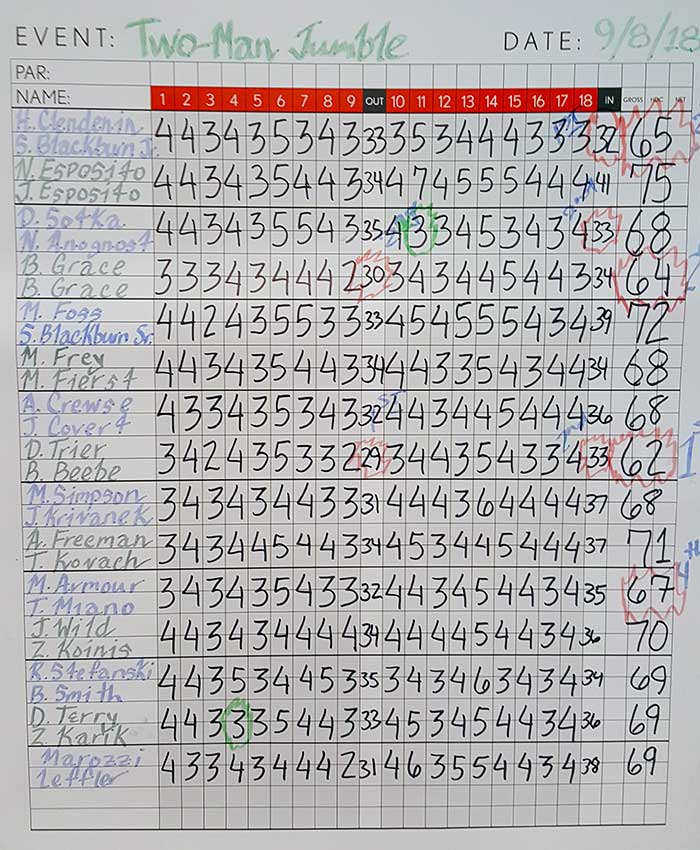 EVENT: Two-Man Jumble DATE: 9/8/18
PAR:
NAME: 1 2 3 4 5 6 7 8 9 OUT 10 11 12 13 14 15 16 17 18 IN GROSS HDC NET
H. Clendenin
S. Blackburn Jr. 4 4 3 4 3 5 3 4 3 33 3 5 3 4 4 4 3 3 3 32 65
N. Esposito
J. Esposito 4 4 3 4 3 5 4 4 3 34 4 7 4 5 5 5 4 4 4 41 75
D. Sotka
N. Anognost 4 4 3 4 3 5 5 4 3 35 4 3 3 4 5 3 4 3 4 33 68
B. Grace
B. Grace 3 3 3 4 3 4 4 4 2 30 3 4 3 4 4 5 4 4 3 34 64
M. Foss
S. Blackburn Sr. 4 4 2 4 3 5 5 3 3 33 4 5 4 5 5 5 4 3 4 39 72
M. Frey
M. Fierst 4 4 3 4 3 5 4 4 3 34 4 4 3 3 5 4 3 4 4 34 68
A. Crewse
J. Covert 4 3 3 4 3 5 3 4 3 32 4 4 3 4 4 5 4 4 4 36 68
D. Trier
B. Beebe 3 4 2 4 3 5 3 3 2 29 3 4 4 3 5 4 3 3 4 33 62
M. Simpson
J. Krivanek 3 4 3 4 3 4 4 3 3 31 4 4 4 3 6 4 4 4 4 37 68
A. Freeman
T. Kovach 3 4 3 4 4 5 4 4 3 34 4 5 3 4 4 5 4 4 4 37 71
M. Armour
T. Miano 3 4 3 4 3 5 4 3 3 32 4 4 3 4 5 4 4 3 4 35 67
J. Wild
Z. Koinis 4 4 3 4 3 4 4 4 4 34 4 4 4 4 5 4 4 3 4 36 70
R. Stefanski
B. Smith 4 4 3 5 3 4 4 5 3 35 3 4 3 4 6 3 4 3 4 34 69
D. Terry
Z. Karik 4 4 3 3 3 5 4 4 3 33 4 5 3 4 5 4 4 3 4 36 69
Marozzi
Leffler 4 3 3 4 3 4 4 4 2 31 4 6 3 5 5 4 4 3 4 38 69